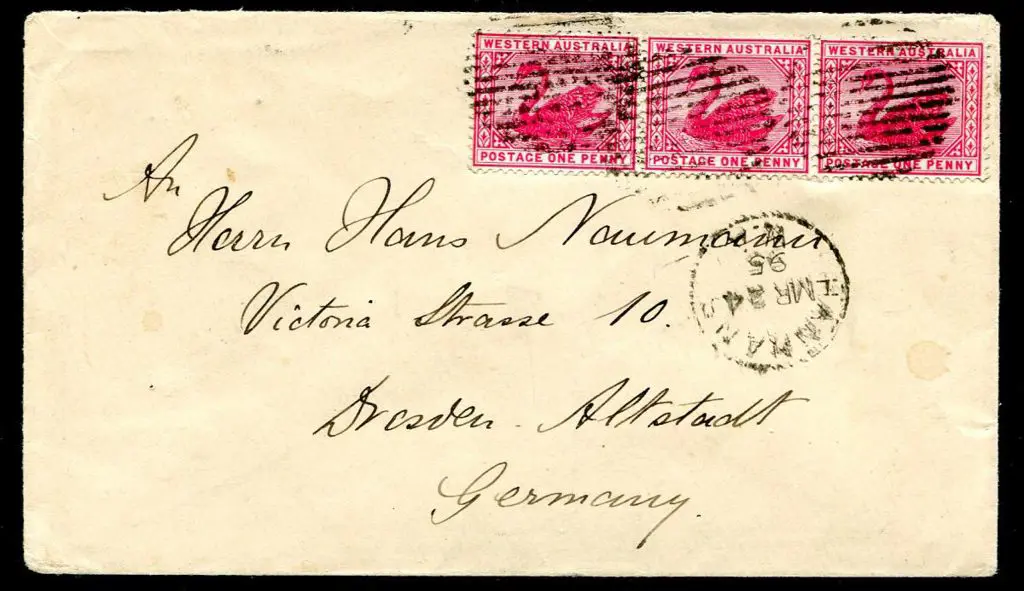 WESTERN AUSTRALIA
POSTAGE ONE PENNY
WESTERN AUSTRALIA
POSTAGE ONE PENNY
WESTERN AUSTRALIA
POSTAGE ONE PENNY
An
Herrn Hans Naumann
Victoria Strasse 10.
Dresden - Altstadt
Germany.
MR 24
95